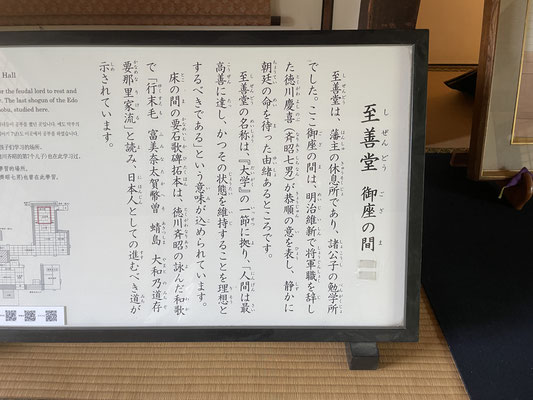 至善堂 御座の間
至善堂は、藩主の休息所であり、諸公子の勉学所
でした。ここ御座の間は、明治維新で将軍職を辞し
た徳川慶喜(斉昭七男)が恭順の意を表し、静かに
朝廷の命を待った由緒あるところです。
至善堂の名称は、『大学』の一節に拠り、「人間は最
高善に達し、かつその状態を維持することを理想と
するべきである」という意味が込められています。
床の間の要石歌碑拓本は、徳川斉昭の詠んだ和歌
で「行末毛 富美奈太賀幣曽 蜻島 大和乃道存
要那里家流」と読み、日本人としての進むべき道が
示されています。
Hall
the feudal lord to rest and
The last shogun of the Edo
studied here.